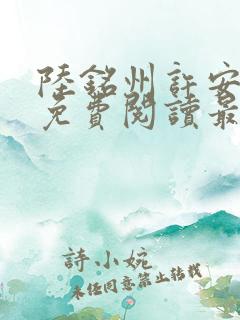 陸銘州許安
免費閱讀最
詩小婉
未經同意禁止轉載